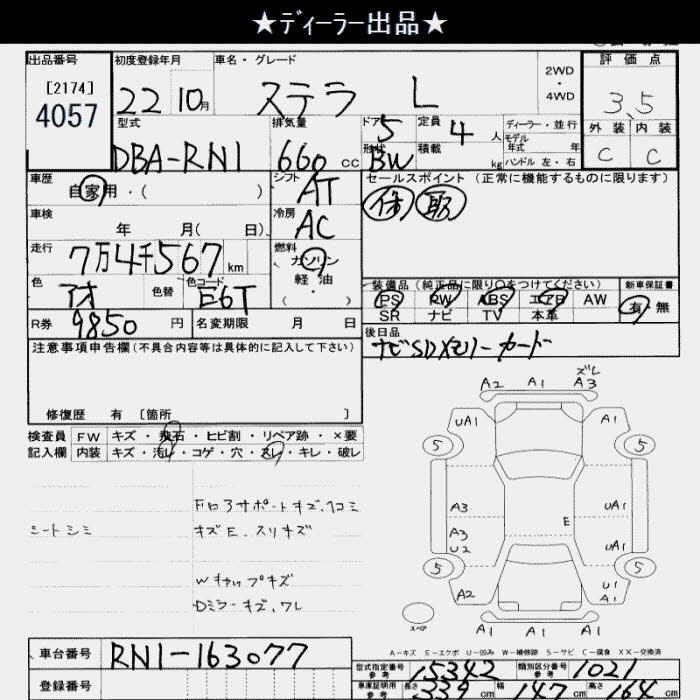 ★ディーラー出品★
出品番号 初度登録年月 車名・グレード 評価点
[2174]
4057
22 10月 ステラ L 2WD・4WD 3.5
型式 排気量 ドア 定員 ディーラー・並行 外装 内装
DBA-RN1 660cc 5 4人 モデル年式 年 C C
形状 BW 積載 kg ハンドル 左・右
車歴 シフト セールスポイント (正常に機能するものに限ります)
自家用・( ) AT 保 取
車検 年 月( 日) 冷房 AC
走行 7万4千567km 燃料 ガソリン
軽油
色 アオ 色替 色コード E6T ( ・ )
装備品(純正品に限り○をつけてください) 新車保証書
PS PW ABS エアB AW 有・無
SR ナビ TV 本革
R券 9850円 名変期限 月 日 後日品
ナビSDメモリーカード
注意事項申告欄(不具合内容等は具体的に記入して下さい)
修復歴 有 [箇所 ]
検査員 FW キズ・飛石・ヒビ割・リペア跡・×要
記入欄 内装 キズ・汚れ・コゲ・穴・スレ・キレ・破レ
ズレ
A2 A1 A3
UA1 A1
5 5
A3 UA1
Fロアサポートキズ、凹ミ
シートシミ キズE、スリキズ
E
A3
U2 UA1
5 5
Wキャップキズ
Dミラーキズ、ワレ
A2 U1
A1
スペア
A1
A-キズ E-エクボ U-凹み W-補修跡 S-サビ C-腐食 XX-交換済
車台番号 RN1-163077
型式指定番号 参考 15342 類別区分番号 参考 1021
登録番号 車庫証明用 参考 長さ 339 幅 147 高さ 164